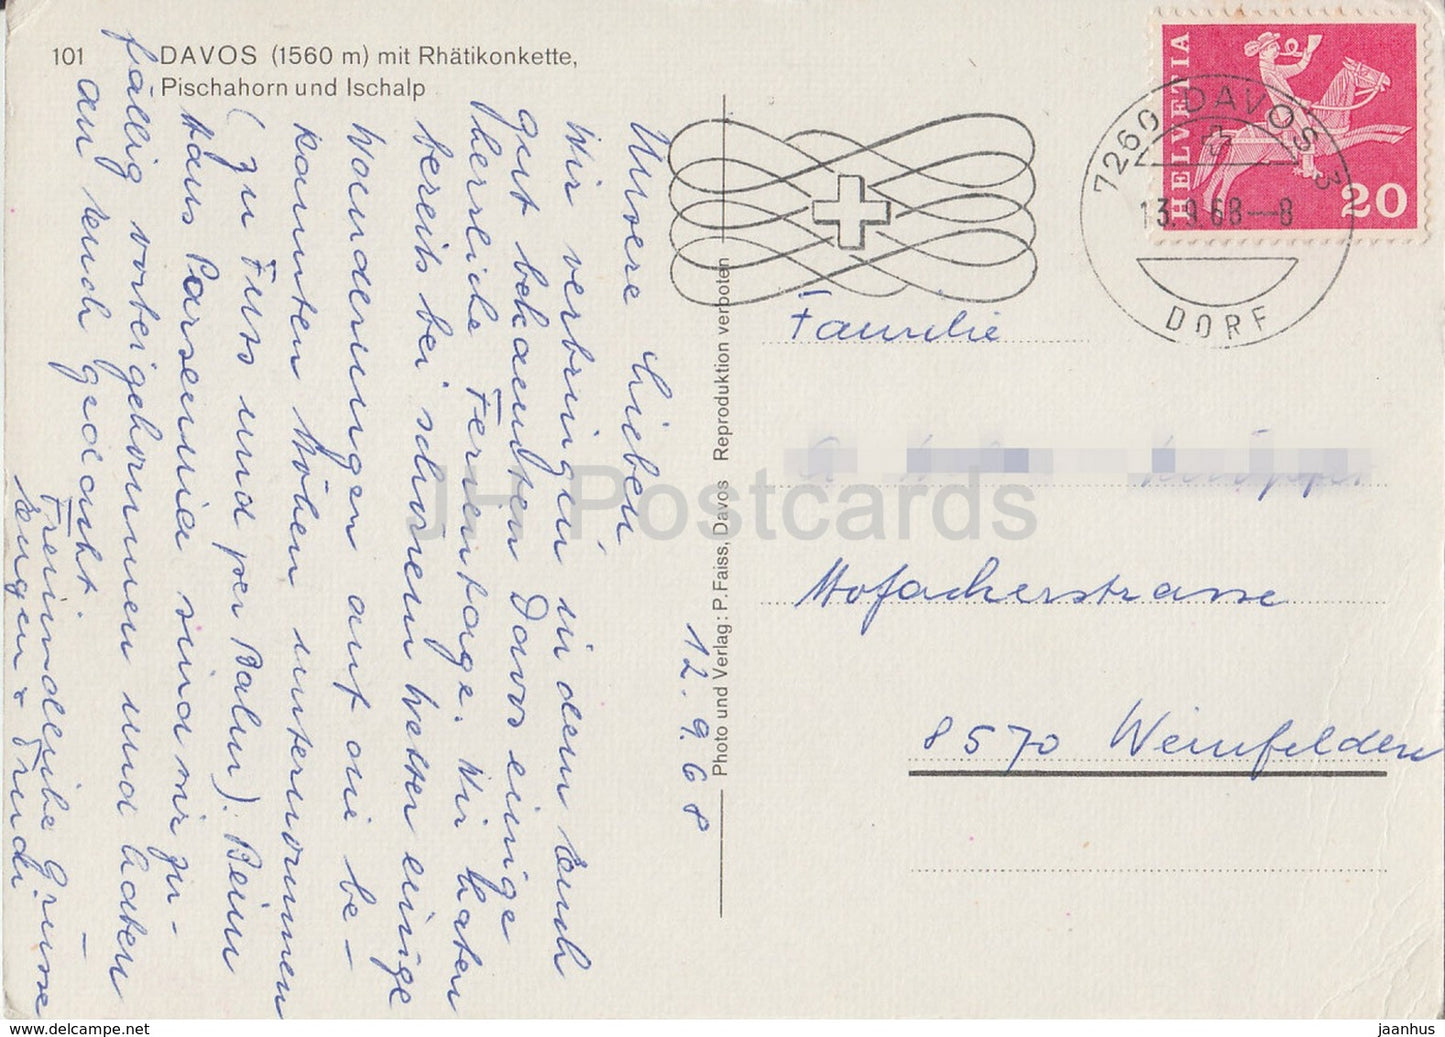 101 DAVOS (1560 m) mit Rhätikonkette,
Pischahorn und Ischalp
HELVETIA
20
7260 DAVOS 3
13.9.68--8
DORF
Unsere Lieben,
Wir verbringen in dem Euch
gut bekannten Davos einige
herrliche Ferientage. Wir haben
bereits bei schönem Wetter einige
Wanderungen auf die be-
kannten Höhen unternommen
(zu Fuss und per Bahn). Beim
Haus Parsenna sind wir zu-
fällig vorbeigekommen und haben
an Euch gedacht.
Freundliche Grüsse
Eugen & Trudi
12.9.68
Photo und Verlag: P. Faiss, Davos Reproduktion verboten
Familie
Hofackerstrasse
8570 Weinfelden
JH Postcards
www.delcampe.net
jaanhus